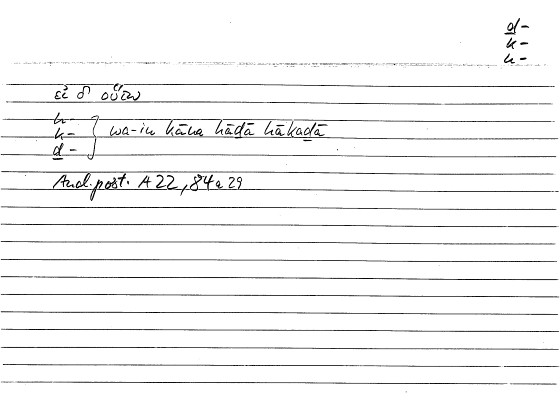 d̲ -
k -
h -
εἰ δ' οὕτω
h -
k - } wa-in kāna hād̲ā hākad̲ā
d̲ -
And. post. A 22, 84a29